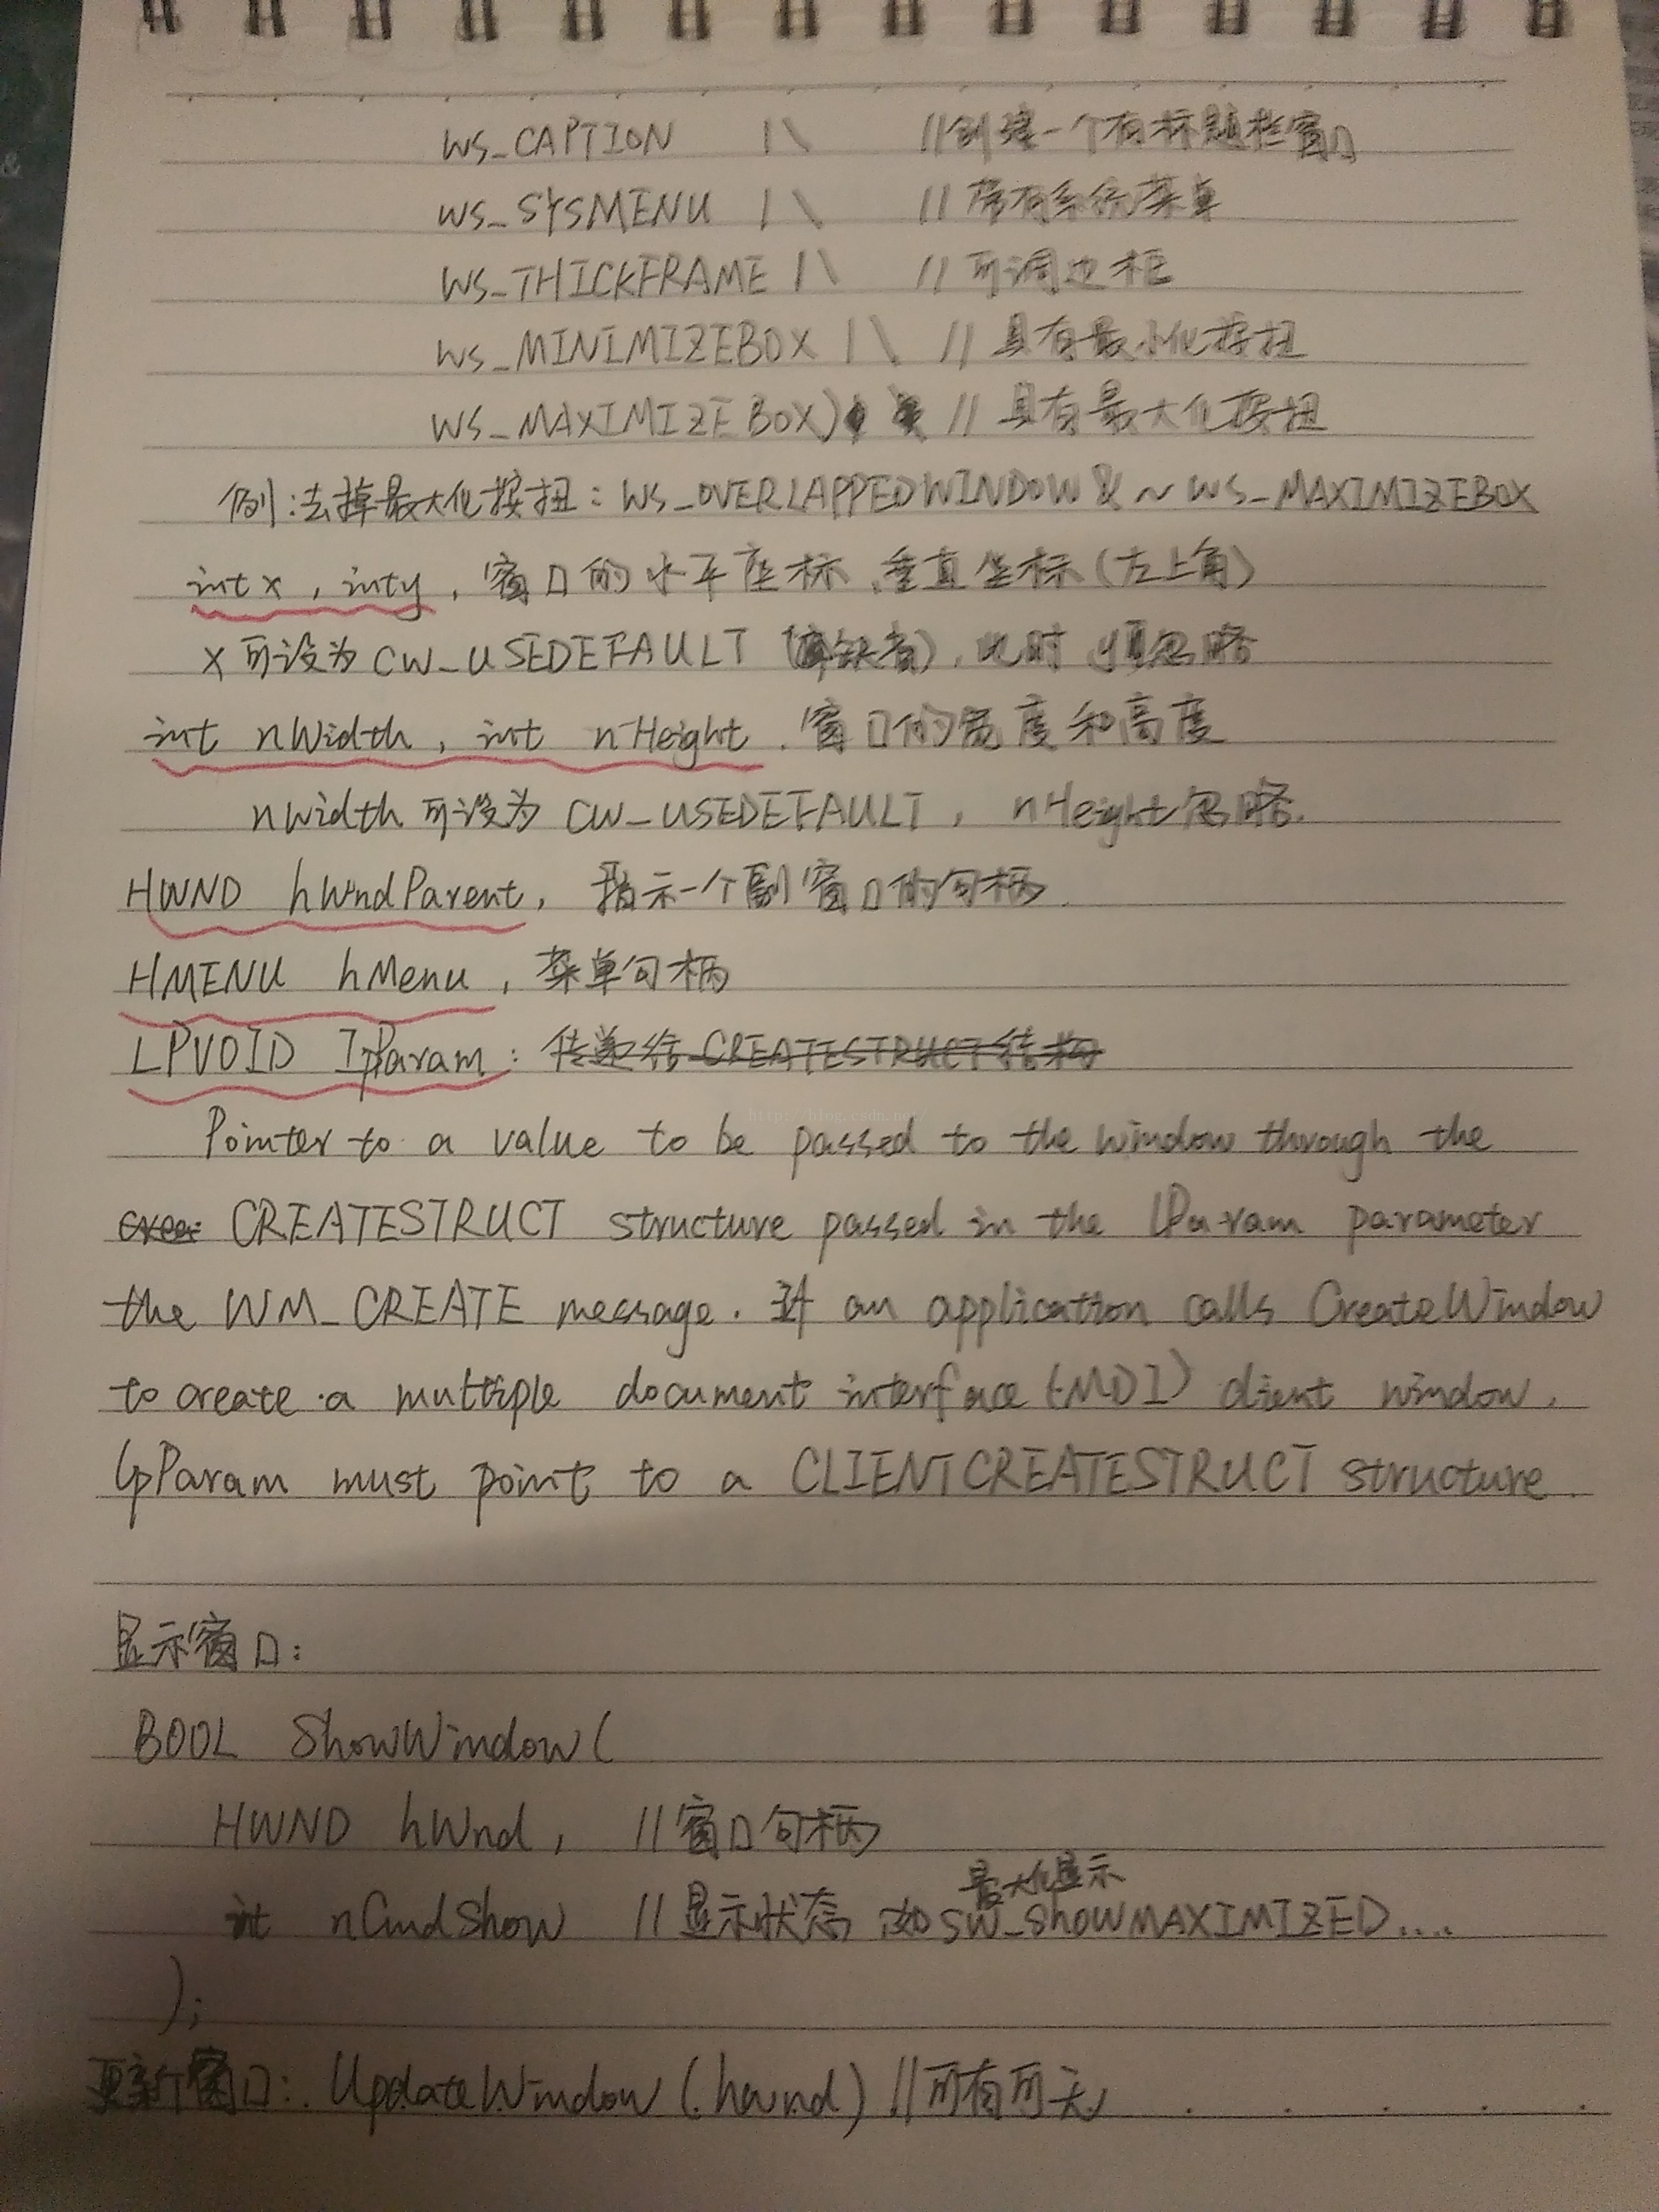 WS_CAPTION | \ //创建一个有标题栏窗口
WS_SYSMENU | \ //带有系统菜单
WS_THICKFRAME | \ //可调边框
WS_MINIMIZEBOX | \ //具有最小化按扭
WS_MAXIMIZEBOX) //具有最大化按扭
例:去掉最大化按扭: WS_OVERLAPPEDWINDOW & ~ WS_MAXIMIZEBOX
int x, int y, 窗口的水平座标、垂直坐标(左上角)
x可设为CW_USEDEFAULT (缺省), 此时y项忽略
int nWidth, int nHeight. 窗口的宽度和高度
nWidth可设为 CW_USEDEFAULT, nHeight忽略.
HWND hWndParent, 指示一个副窗口的句柄.
HMENU hMenu, 菜单句柄
LPVOID lpParam: 传递给CREATESTRUCT结构
http://blog.csdn.net/
Pointer to a value to be passed to the window through the
crea CREATESTRUCT structure passed in the lParam parameter
the WM_CREATE message. If an application calls CreateWindow
to create a multiple document interface (MDI) client window.
lpParam must point to a CLIENTCREATESTRUCT structure.
显示窗口:
BOOL ShowWindow(
HWND hWnd, //窗口句柄
最大化显示
int nCmdShow //显示状态, 如SW_ShOWMAXIMIZED....
);
更新窗口: UpdateWindow (hwnd) //可有可无